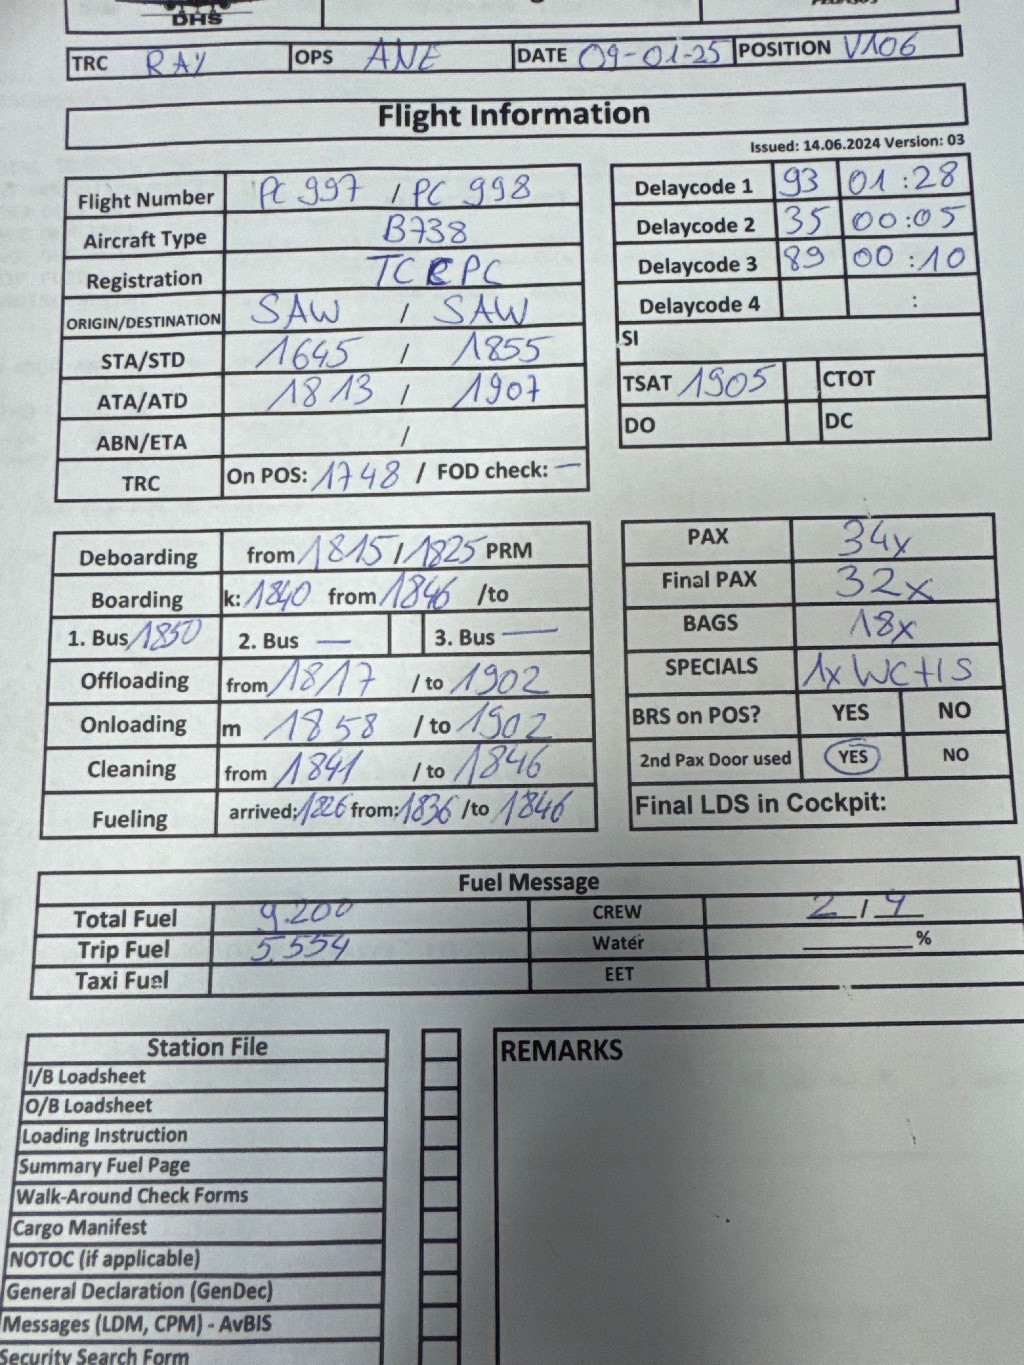 DHS
PEGASUS
TRC RAY OPS ANE DATE 09-01-25 POSITION V106
Flight Information
Issued: 14.06.2024 Version: 03
Flight Number PC 997 / PC 998
Aircraft Type B738
Registration TCCPC
ORIGIN/DESTINATION SAW / SAW
STA/STD 1645 / 1855
ATA/ATD 1813 / 1907
ABN/ETA /
TRC On POS: 1748 / FOD check: —
Delaycode 1 93 01:28
Delaycode 2 35 00:05
Delaycode 3 89 00:10
Delaycode 4 :
SI
TSAT 1905 CTOT
DO DC
Deboarding from 1815 / 1825 PRM
Boarding k: 1840 from 1846 /to
1. Bus 1850 2. Bus — 3. Bus —
Offloading from 1817 / to 1902
Onloading m 1858 / to 1902
Cleaning from 1841 / to 1846
Fueling arrived: 1826 from: 1836 /to 1846
PAX 34x
Final PAX 32x
BAGS 18x
SPECIALS 1x WCHS
BRS on POS? YES NO
2nd Pax Door used YES NO
Final LDS in Cockpit:
Fuel Message
Total Fuel 9.200 CREW 2 / 4
Trip Fuel 5.554 Water %
Taxi Fuel EET
Station File
I/B Loadsheet
O/B Loadsheet
Loading Instruction
Summary Fuel Page
Walk-Around Check Forms
Cargo Manifest
NOTOC (if applicable)
General Declaration (GenDec)
Messages (LDM, CPM) - AvBIS
Security Search Form
REMARKS